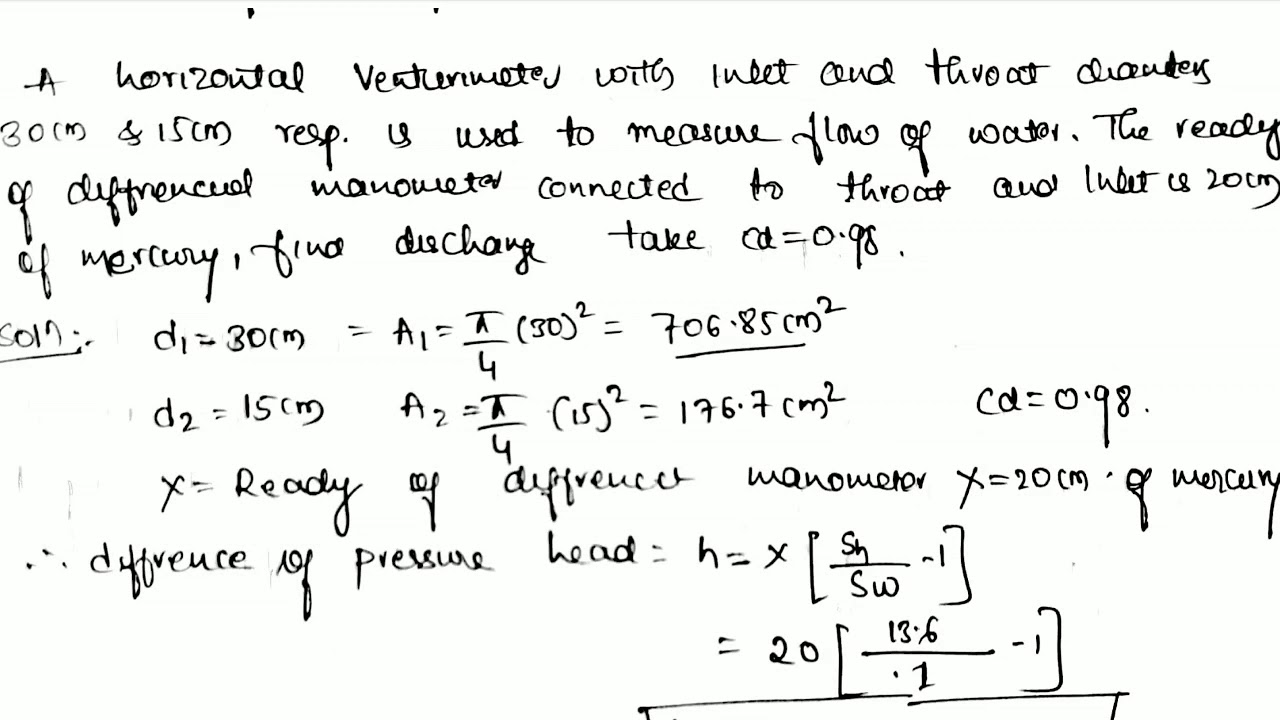 A horizontal Venturimeter with inlet and throat diameters
30cm & 15cm resp. is used to measure flow of water. The ready
of diffrencial manometer connected to throat and Inlet is 20cm
of mercury, find discharge take cd=0.98.
Soln:. d1=30cm = A1= π/4 (30)² = 706.85cm²
d2=15cm A2=π/4 (15)² = 176.7cm² Cd=0.98.
x= Ready of diffrencet manometer x=20cm. of mercury
∴ diffrence of pressure head= h= x [Sh/Sw -1]
= 20 [13.6/.1 -1]